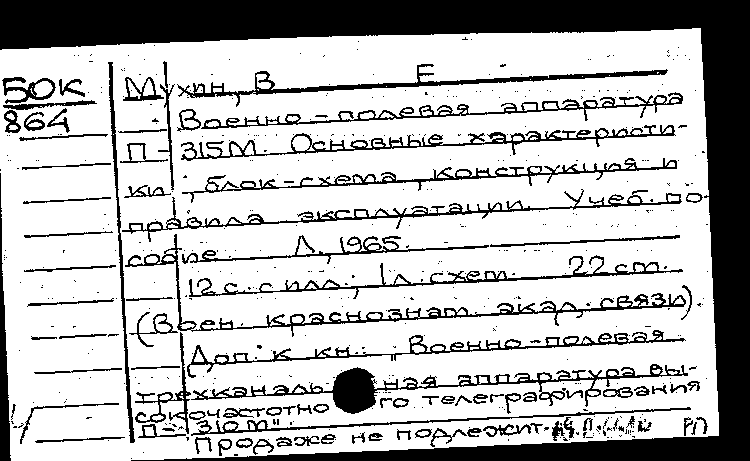 50К
864
Мухин, В Е
Военно-полевая аппаратура
П-315М. Основные характеристи-
ки, блок-схема, конструкция и
правила эксплуатации. Учеб. по-
собие. Л., 1965.
12 с. с илл.; 1 л. схем. 22 см.
(Воен. краснознам. акад. связи).
Доп. к кн.: "Военно-полевая
трехканальная аппаратура вы-
сокочастотного телеграфирования
П-310М".
Продаже не подлежит. РП